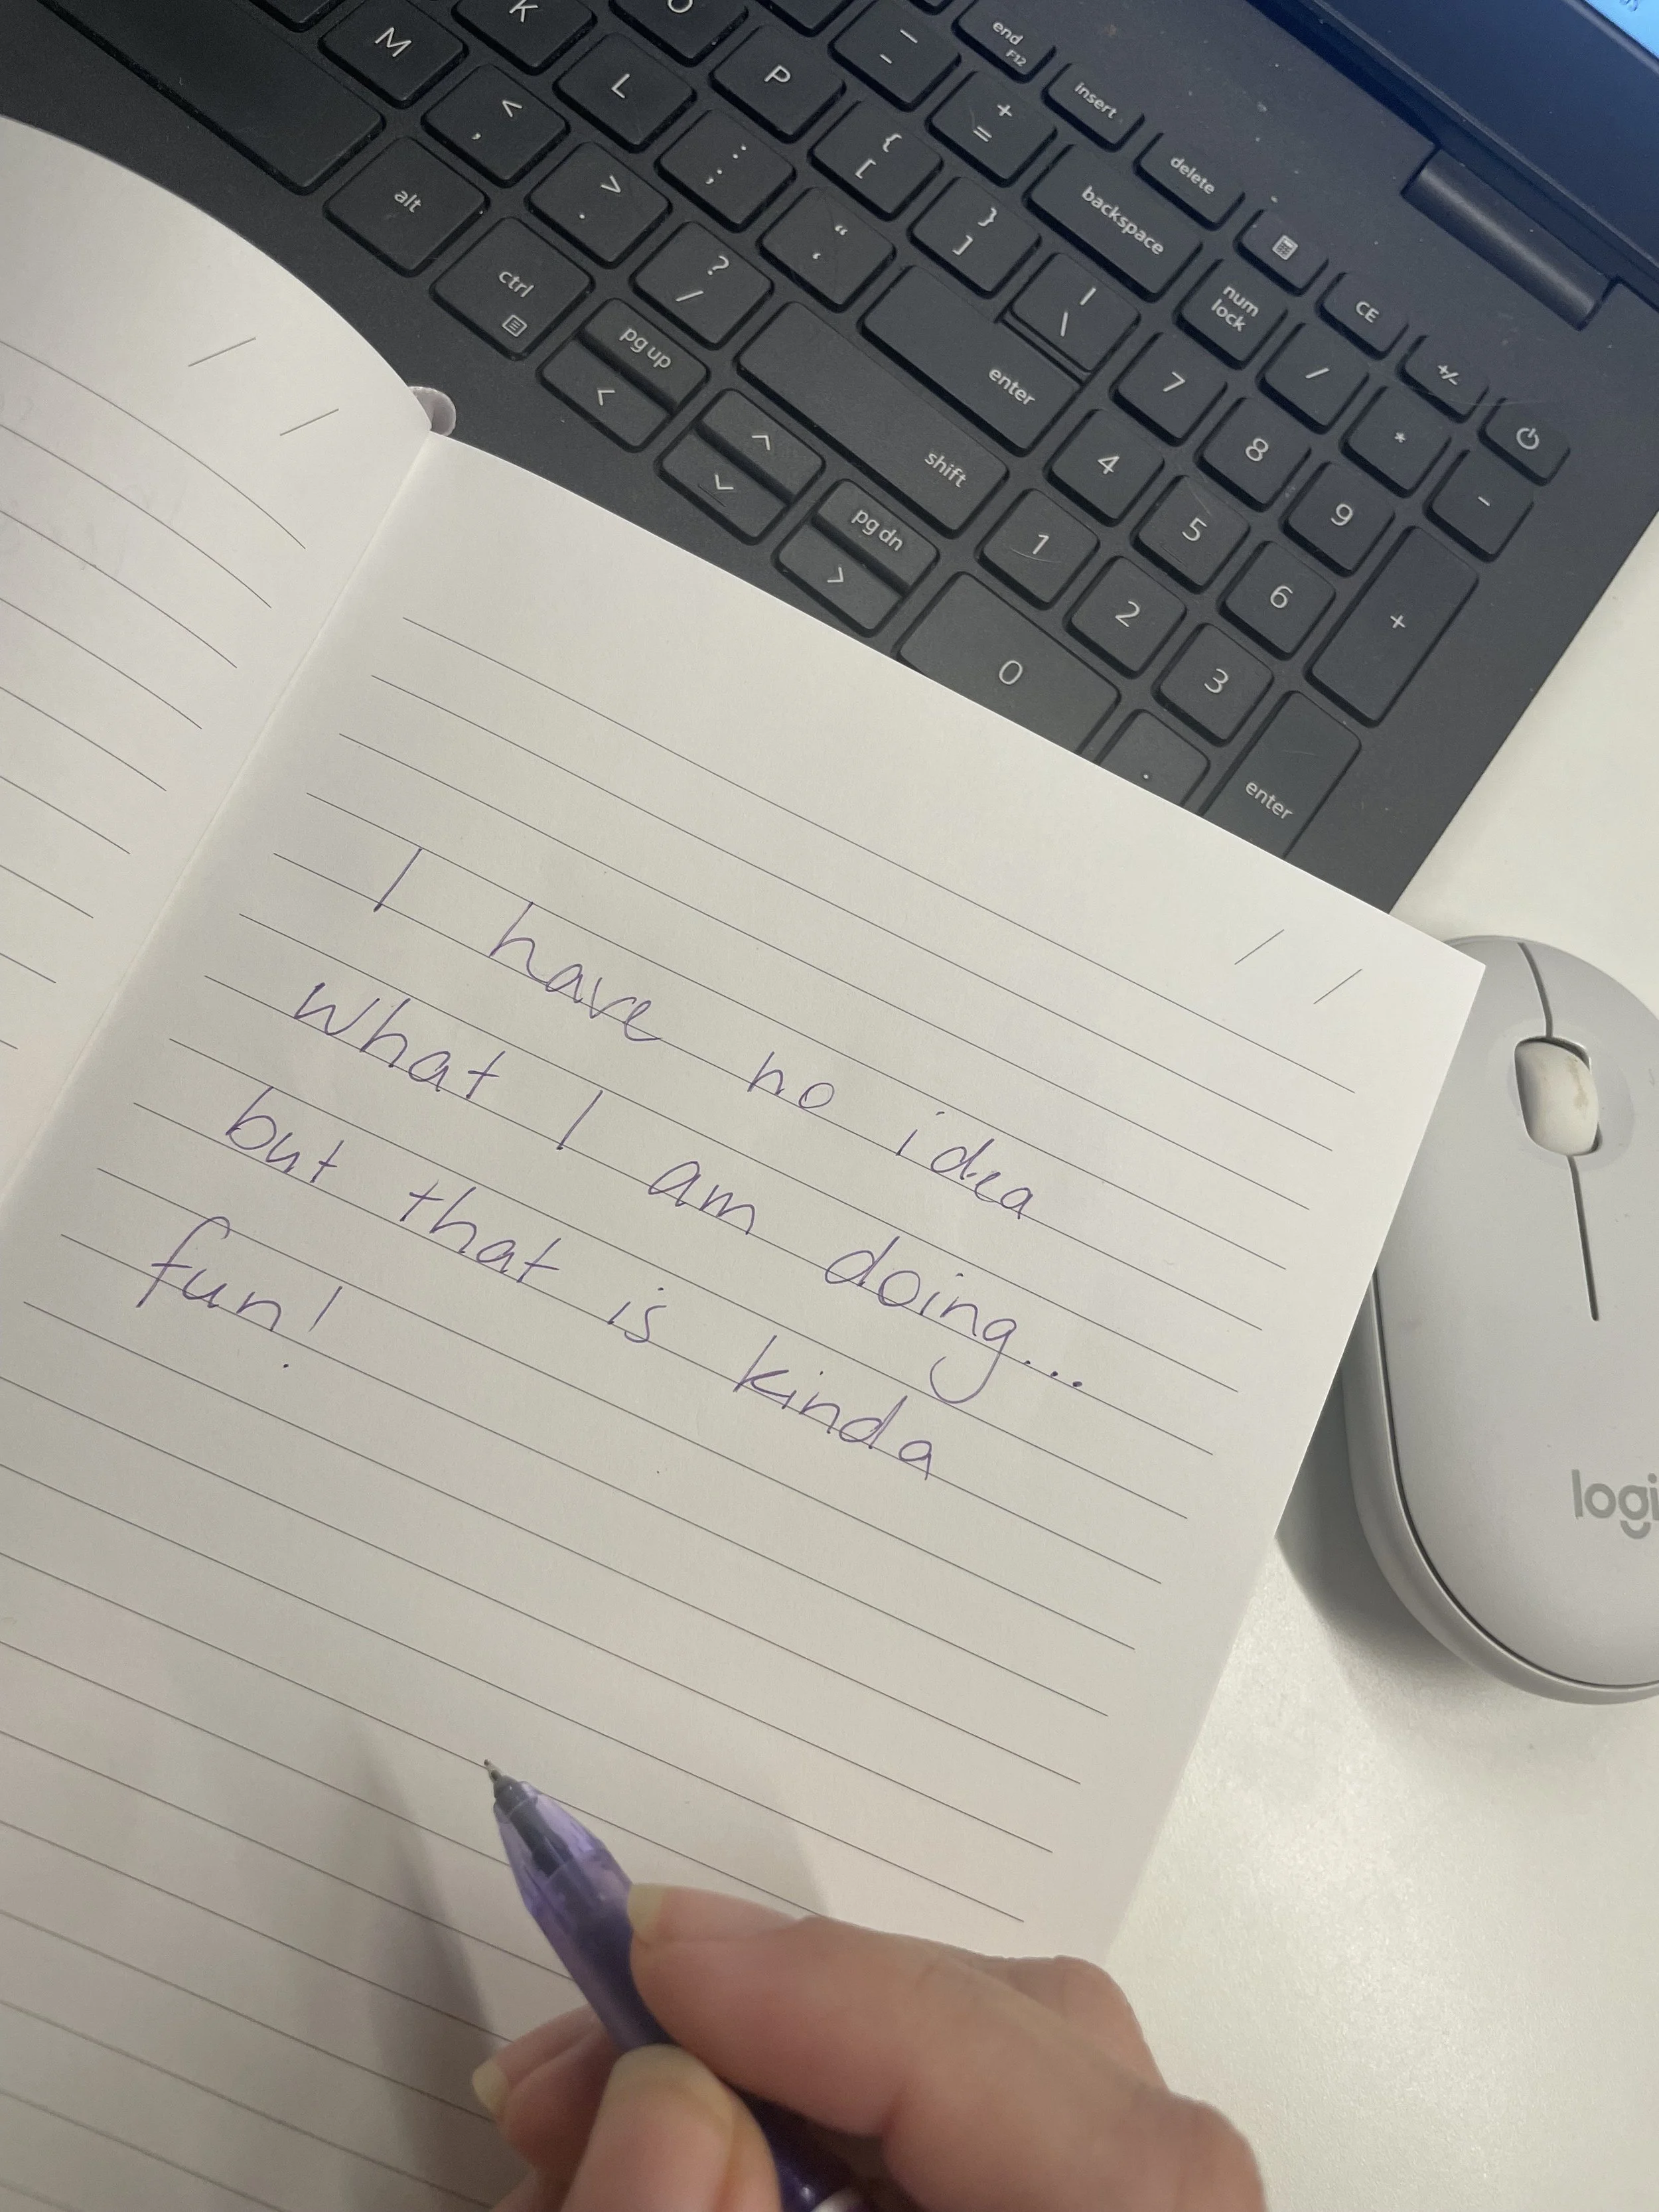 K
O
M
L
P
_
-
end
F12
insert
delete
+
=
backspace
<
,
>
.
:
;
{
[
}
]
|
\
num
lock
CE
+/-
alt
ctrl
?
/
“
‘
enter
pg up
<
^
shift
pg dn
>
7
8
9
/
*
-
4
5
6
+
1
2
3
0
.
enter
I have no idea
what I am doing...
but that is kinda
fun!
logi